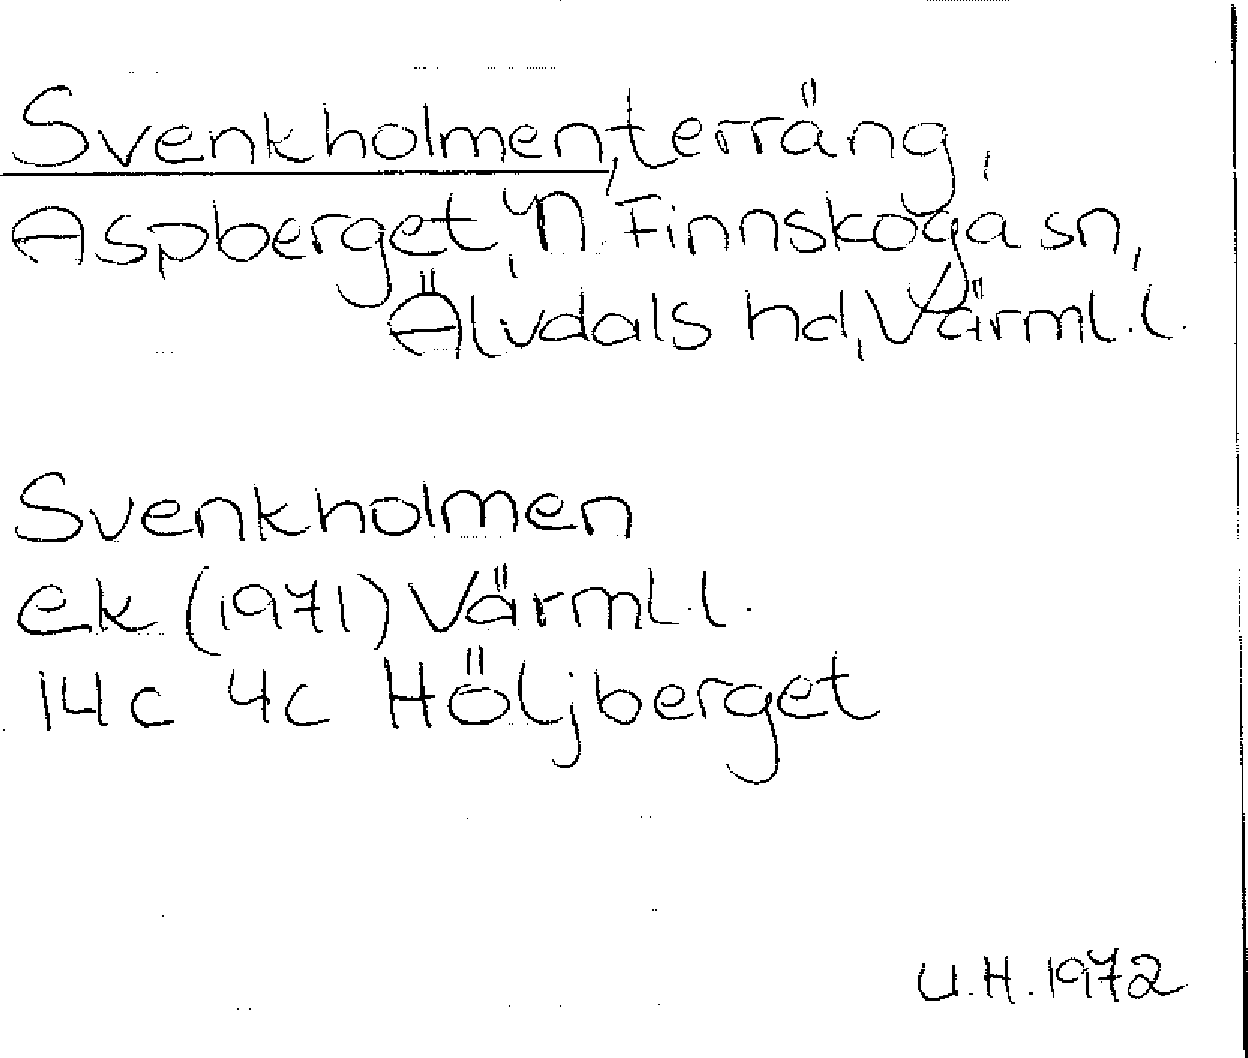 Svenkholmen, terräng,
Aspberget, N. Finnskoga sn,
Älvdals hd, Värml. l.
Svenkholmen
ek (1971) Värml. l.
14c 4c Höljberget
U.H. 1972